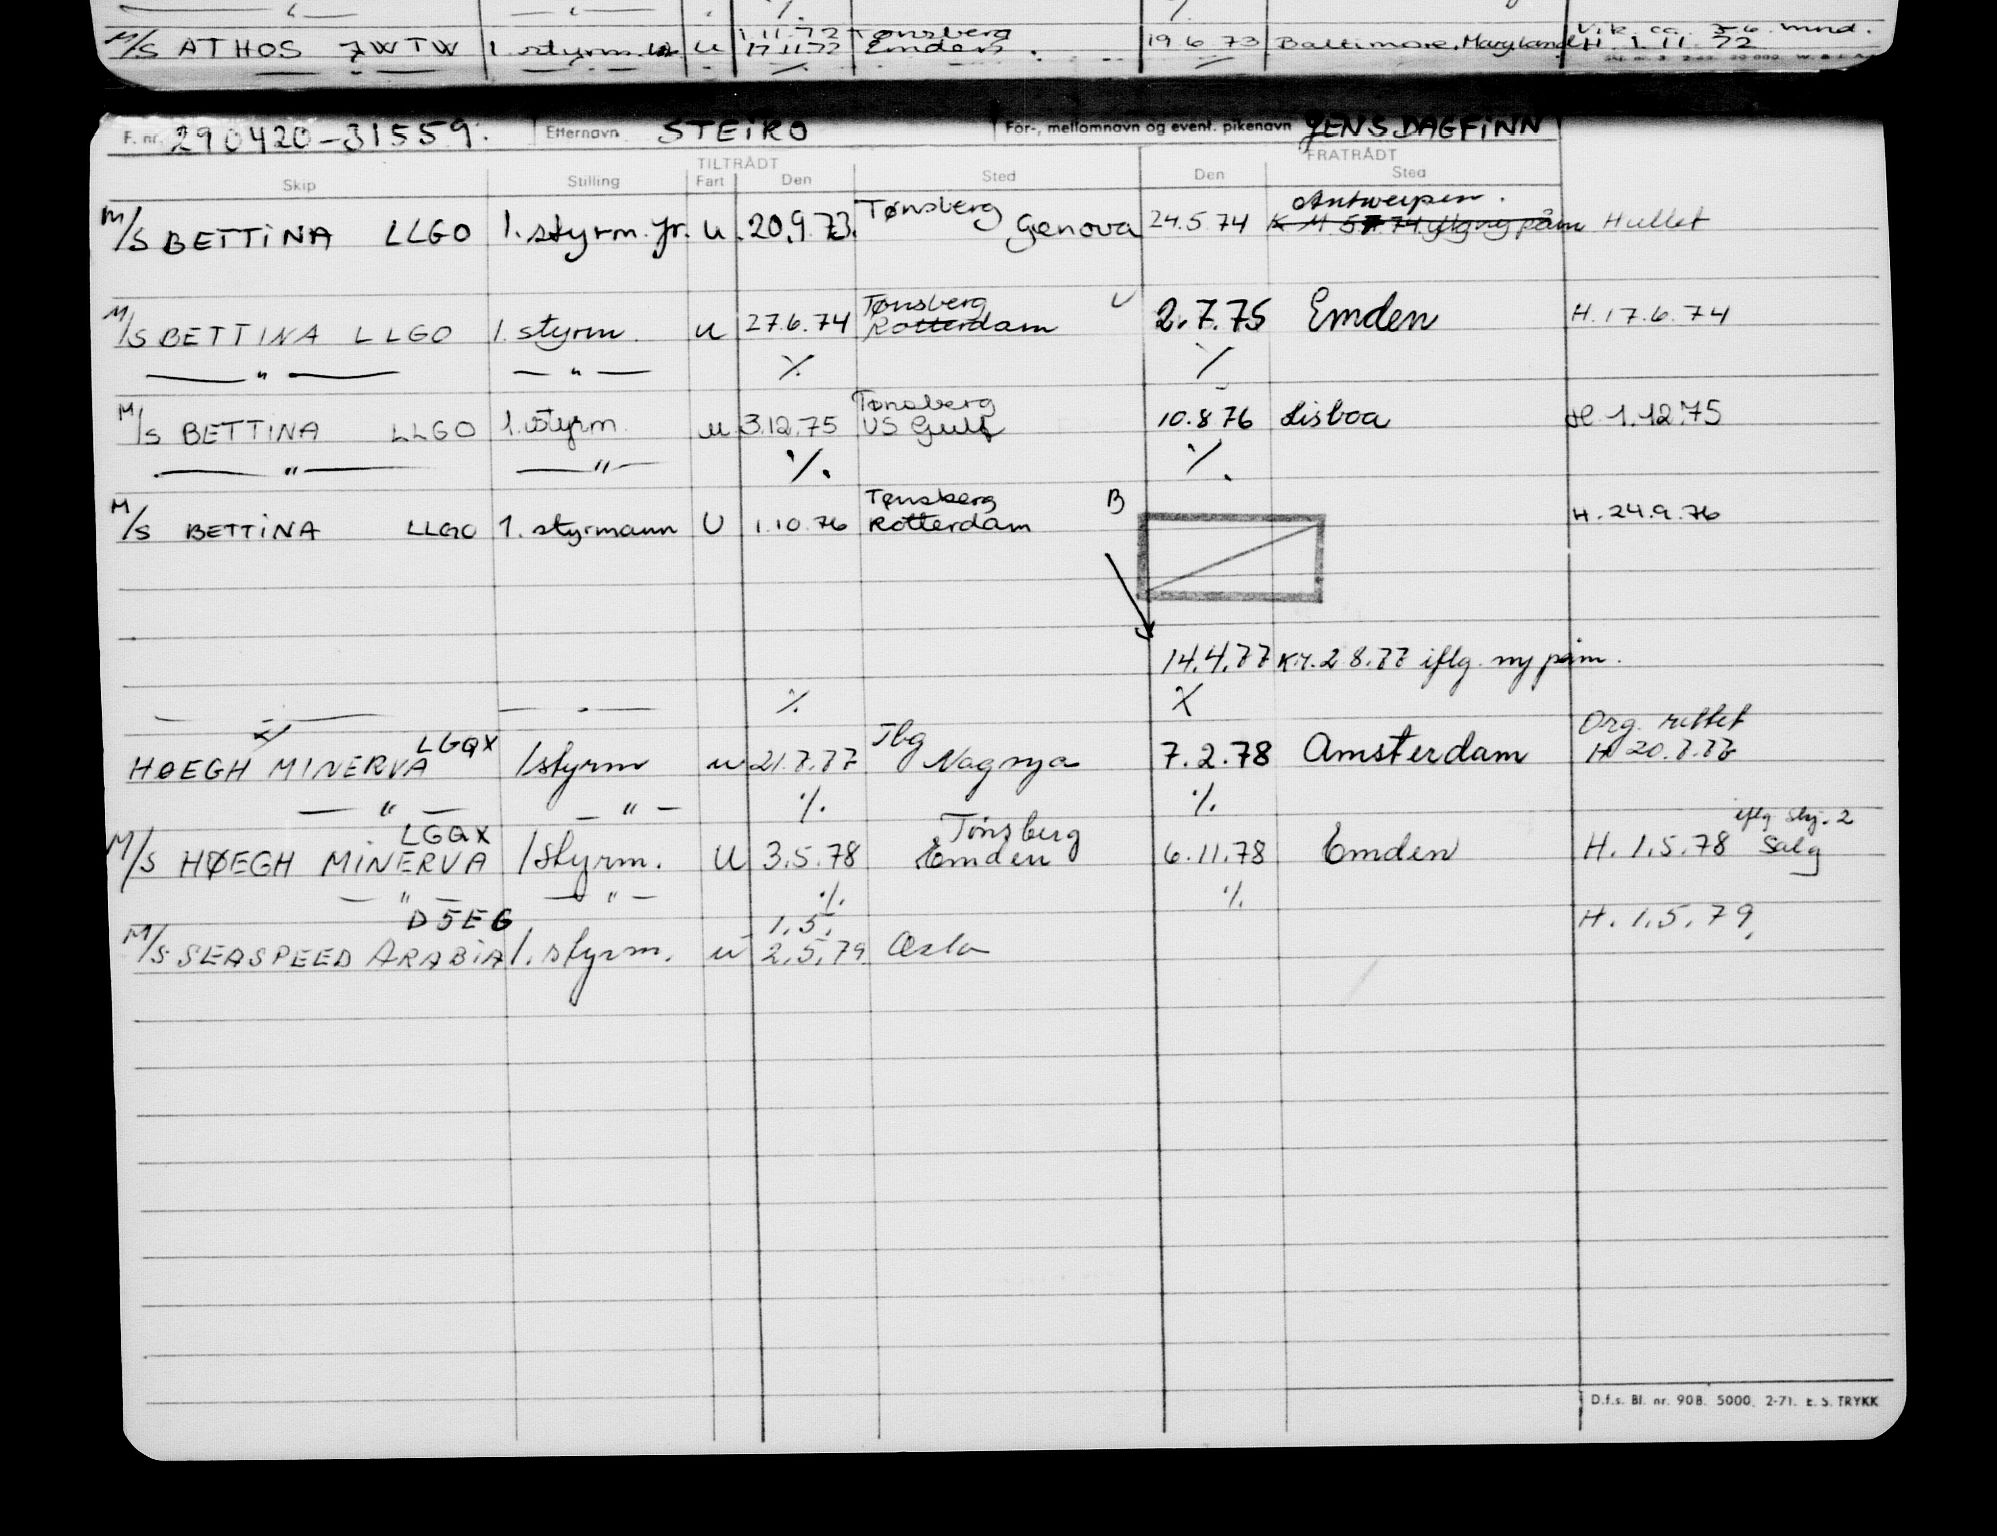 M/S ATHOS 7WTW 1. styrm. u 1.11.72 Tønsberg
17.11.72 Emden. 19.6.73 Baltimore, Maryland H. 1.11.72
F. nr. 290420-31559. Etternavn STEIRO For-, mellomnavn og event. pikenavn JENS DAGFINN
TILTRÅDT FRATRÅDT
Skip Stilling Fart Den Sted Den Sted
Antwerpen.
M/S BETTINA LLGO 1. styrm. jr. u. 20.9.73. Tønsberg Genova 24.5.74 Hullet
Tønsberg
M/S BETTINA LLGO 1. styrm. u 27.6.74 Rotterdam 2.7.75 Emden H. 17.6.74
— " — — " — ٪ ٪
Tønsberg
M/S BETTINA LLGO 1. styrm. u 3.12.75 US Gulf 10.8.76 Lisboa H. 1.12.75
— " — — " — ٪ ٪
Tønsberg B
M/S BETTINA LLGO 1. styrmann U 1.10.76 Rotterdam H. 24.9.76
14.4.77 K.M. 2.8.77 iflg. ny påm.
٪ ٪
LGQX Tbg Org. rettet
HØEGH MINERVA 1styrm u 21.7.77 Nagoya 7.2.78 Amsterdam H 20.7.77
— " — — " — ٪ ٪
LGQX Tønsberg iflg skj. 2
M/S HØEGH MINERVA 1styrm. U 3.5.78 Emden 6.11.78 Emden H. 1.5.78 Salg
— " — — " — ٪ ٪
D5EG 1.5. H. 1.5.79.
M/S SEASPEED ARABIA 1. styrm. u 2.5.79. Oslo
D.f.s. Bl. nr. 90B. 5000. 2-71. E. S. TRYKK